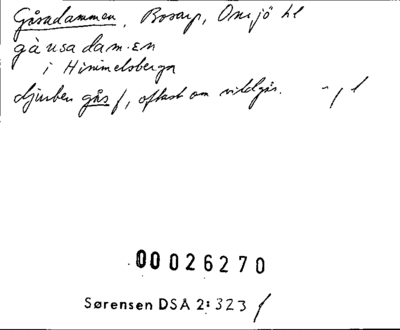 Gåsadammen, Bosarp, Onsjö hd
gåusadam·en
i Himmelsberga
djurben gås f, oftast om vildgås.
00026270
Sørensen DSA 2:323